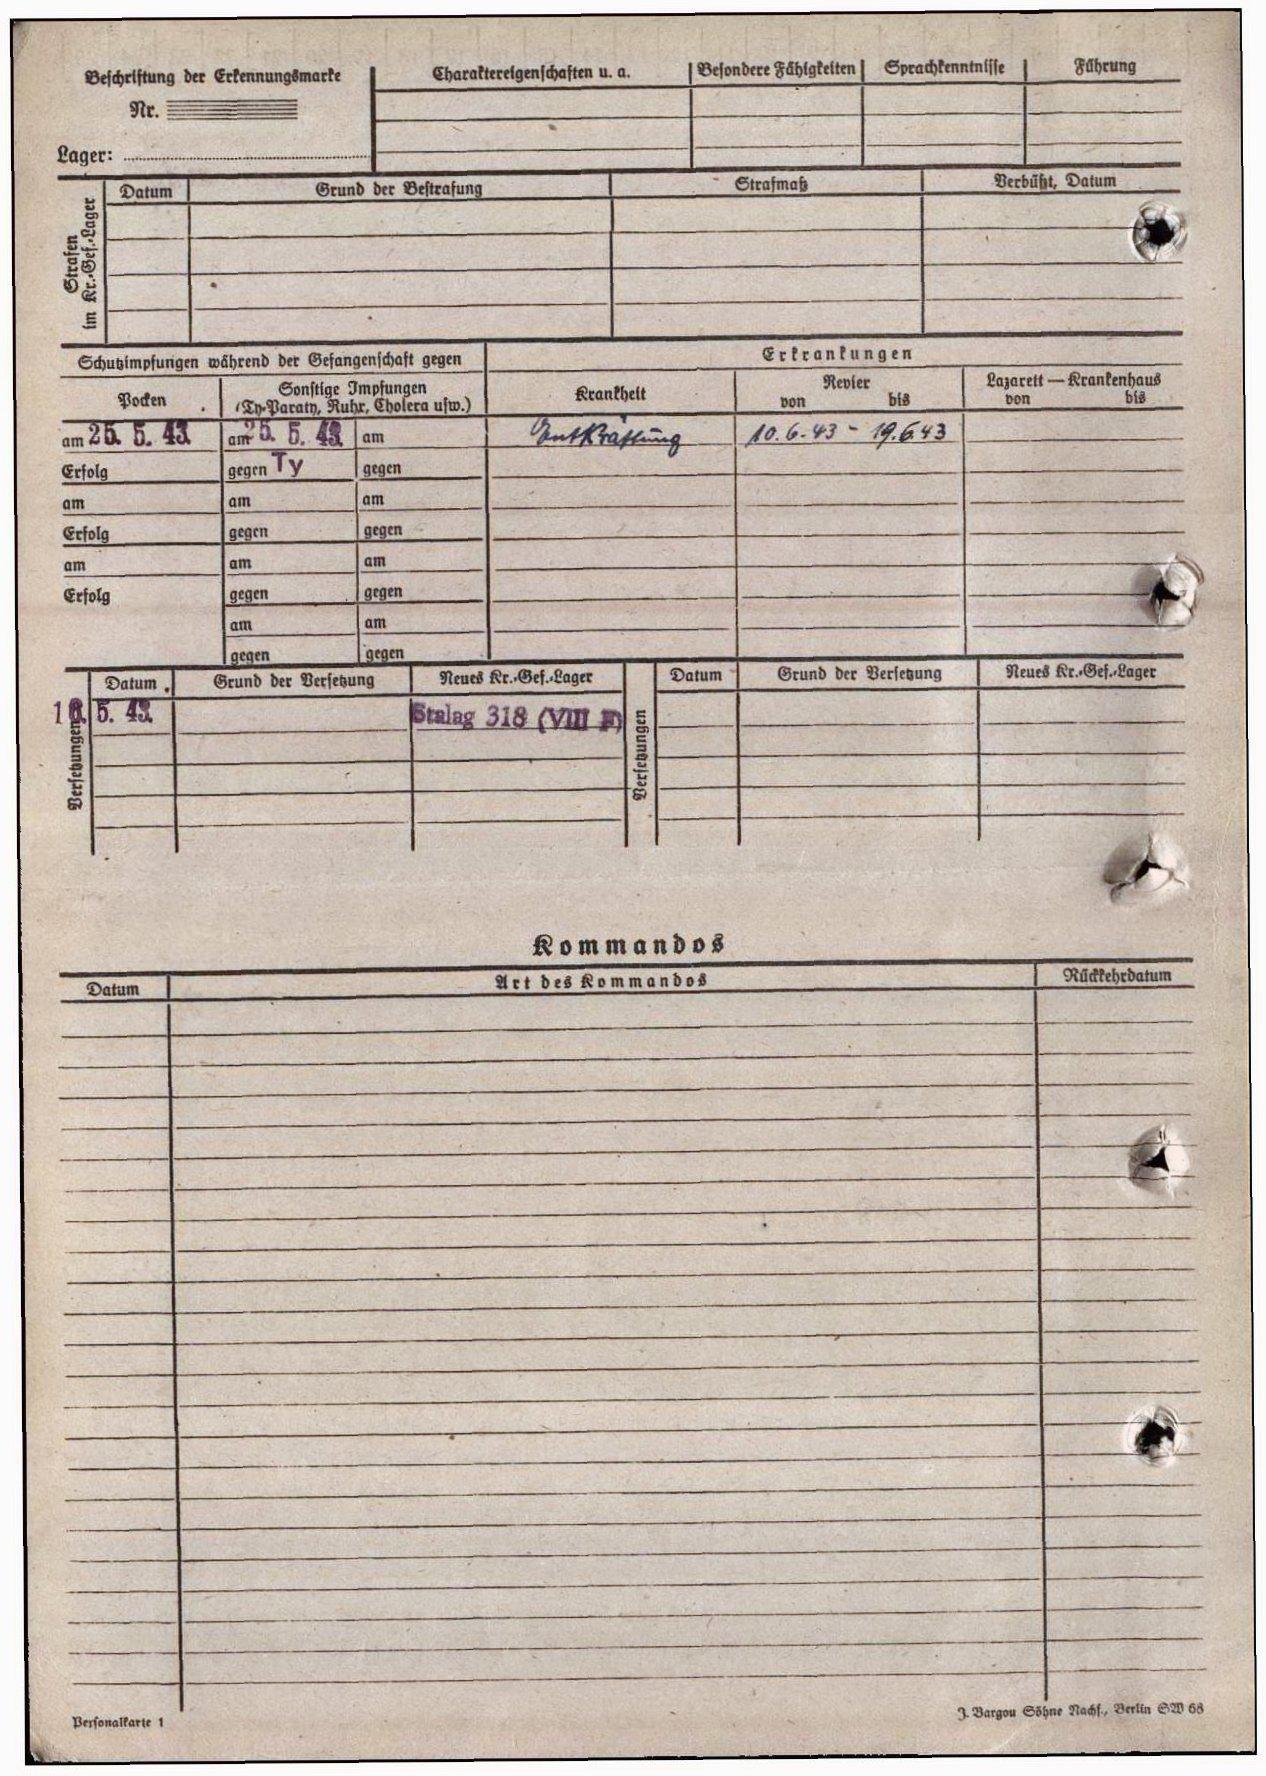 Beschriftung der Erkennungsmarke
Nr.
Lager:
Charaktereigenschaften u. a.
Besondere Fähigkeiten
Sprachkenntnisse
Führung
Strafen im Kr.-Gef.-Lager
Datum
Grund der Bestrafung
Strafmaß
Verbüßt, Datum
Schutzimpfungen während der Gefangenschaft gegen
Erkrankungen
Pocken
Sonstige Impfungen
(Ty-Paraty, Ruhr, Cholera usw.)
Krankheit
Revier
von bis
Lazarett — Krankenhaus
von bis
am 25. 5. 43. am 25. 5. 43. am Entkräftung 10.6.43 - 19.6.43
Erfolg gegen Ty gegen
am am am
Erfolg gegen gegen
am am am
Erfolg gegen gegen
am am
gegen gegen
Versetzungen
Datum
Grund der Versetzung
Neues Kr.-Gef.-Lager
Versetzungen
Datum
Grund der Versetzung
Neues Kr.-Gef.-Lager
5. 43. Stalag 318 (VIII F)
Kommandos
Datum
Art des Kommandos
Rückkehrdatum
Personalkarte 1
J. Bargou Söhne Nachf., Berlin SW 68